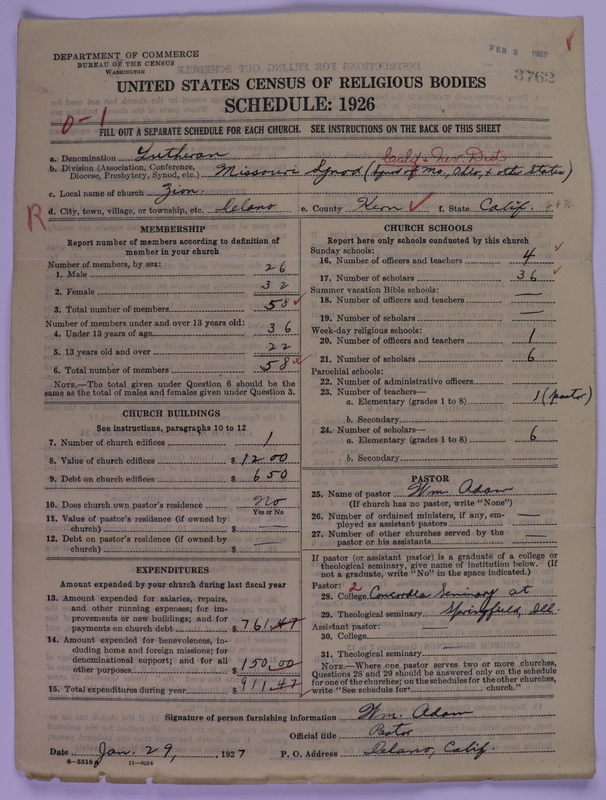 DEPARTMENT OF COMMERCE
BUREAU OF THE CENSUS
WASHINGTON
FEB 3 1927
3762
UNITED STATES CENSUS OF RELIGIOUS BODIES
SCHEDULE: 1926
0-1
FILL OUT A SEPARATE SCHEDULE FOR EACH CHURCH. SEE INSTRUCTIONS ON THE BACK OF THIS SHEET
a. Denomination Lutheran Calif & Nev. Dist.
b. Division (Association, Conference, Diocese, Presbytery, Synod, etc.) Missouri Synod (Synod of Mo., Ohio, & other States)
c. Local name of church Zion.
R d. City, town, village, or township, etc. Delano e. County Kern f. State Calif.
MEMBERSHIP
Report number of members according to definition of member in your church
Number of members, by sex:
1. Male 26
2. Female 32
3. Total number of members 58
Number of members under and over 13 years old:
4. Under 13 years of age 36
5. 13 years old and over 22
6. Total number of members 58
NOTE.—The total given under Question 6 should be the same as the total of males and females given under Question 3.
CHURCH BUILDINGS
See instructions, paragraphs 10 to 12
7. Number of church edifices 1
8. Value of church edifices $ 1200
9. Debt on church edifices $ 650
10. Does church own pastor's residence No
Yes or No
11. Value of pastor's residence (if owned by church) $ —
12. Debt on pastor's residence (if owned by church) $ —
EXPENDITURES
Amount expended by your church during last fiscal year
13. Amount expended for salaries, repairs, and other running expenses; for improvements or new buildings; and for payments on church debt $ 761.47
14. Amount expended for benevolences, including home and foreign missions; for denominational support; and for all other purposes $ 150.00
15. Total expenditures during year $ 911.47
CHURCH SCHOOLS
Report here only schools conducted by this church
Sunday schools:
16. Number of officers and teachers 4
17. Number of scholars 36
Summer vacation Bible schools:
18. Number of officers and teachers —
19. Number of scholars —
Week-day religious schools:
20. Number of officers and teachers 1
21. Number of scholars 6
Parochial schools:
22. Number of administrative officers
23. Number of teachers—
a. Elementary (grades 1 to 8) 1 (pastor)
b. Secondary
24. Number of scholars—
a. Elementary (grades 1 to 8) 6
b. Secondary
PASTOR
25. Name of pastor Wm. Adam
(If church has no pastor, write "None")
26. Number of ordained ministers, if any, employed as assistant pastors —
27. Number of other churches served by the pastor or his assistants —
If pastor (or assistant pastor) is a graduate of a college or theological seminary, give name of institution below. (If not a graduate, write "No" in the space indicated.)
Pastor: 2
28. College Concordia Seminary at
29. Theological seminary Springfield, Ill.
Assistant pastor: —
30. College
31. Theological seminary —
NOTE.—Where one pastor serves two or more churches, Questions 28 and 29 should be answered only on the schedule for one of the churches; on the schedules for the other churches, write "See schedule for church."
Signature of person furnishing information Wm. Adam
Official title Pastor
Date Jan. 29, 1927 P. O. Address Delano, Calif.
8-5518 11-9054